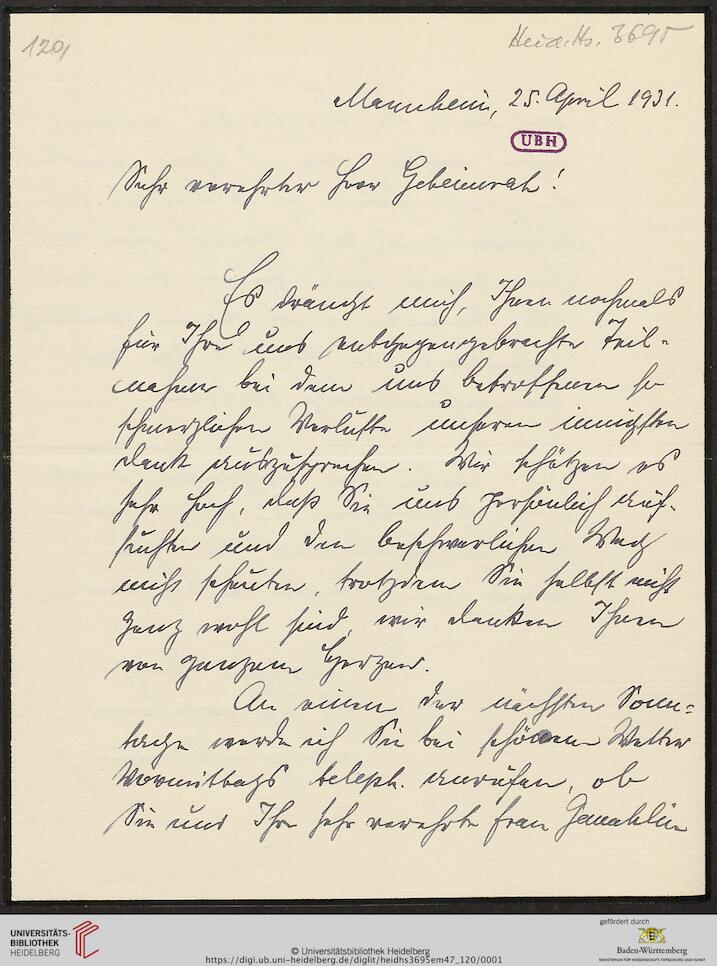 120,
Heid. Hs. 3695
Mannheim, 25. April 1931.
UBH
Sehr verehrter Herr Geheimrat!
Es drängt mich, Ihnen nochmals
für Ihre uns entgegengebrachte Teil-
nahme bei dem uns betroffenen so
schmerzlichen Verluste unseren innigsten
Dank auszusprechen. Wir schätzen es
sehr hoch, daß Sie uns persönlich auf-
suchten und den beschwerlichen Weg
nicht scheuten, trotzdem Sie selbst nicht
ganz wohl sind, wir danken Ihnen
von ganzem Herzen.
An einem der nächsten Sonn-
tage werde ich Sie bei schönem Wetter
Vormittags teleph. anrufen, ob
Sie und Ihre sehr verehrte Frau Gemahlin
UNIVERSITÄTS-
BIBLIOTHEK
HEIDELBERG
© Universitätsbibliothek Heidelberg
https://digi.ub.uni-heidelberg.de/diglit/heidhs3695em47_120/0001
gefördert durch
Baden-Württemberg
MINISTERIUM FÜR WISSENSCHAFT, FORSCHUNG UND KUNST